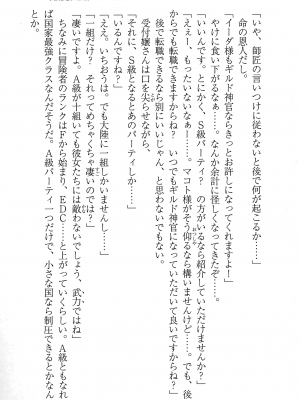 「いや、師匠の言いつけに従わないと後で何が起こるか……」
命の恩人だし。
「イーダ様もギルド神官ならきっとお許しになってくれますよ！」
やけに食い下がるなぁ……。なんか余計に怪しくなってきたぞ……。
「いいんです。とにかく、Ｓ級パーティ？　の方がいるなら紹介していただけませんか？」
「えぇー、もったいないなぁ……。マコト様がそう仰るなら構いませんけど……。でも、後
からでも転職できますからね？　いつでもギルド神官になっていただいて良いですからね？」
後で転職できるなら別にいいじゃん、と思わないでもない。
受付嬢さんは口を尖らせながら、
「それに、Ｓ級となるとあのパーティしか……」
「いるんですね？」
「ええ、いちおうは。でも大陸に一組しかいませんし……」
「一組だけ？　それってめちゃくちゃ凄いのでは？」
「凄いですよ。Ａ級が十組いても彼女たちには敵わないでしょう、武力ではね」
ちなみに冒険者のランクはＦから始まり、ＥＤＣ……と上がっていくらしい。Ａ級ともなれ
ば国家最強クラスなんだそうだ。Ａ級パーティ一つだけで、小さな国なら制圧できるとかなん